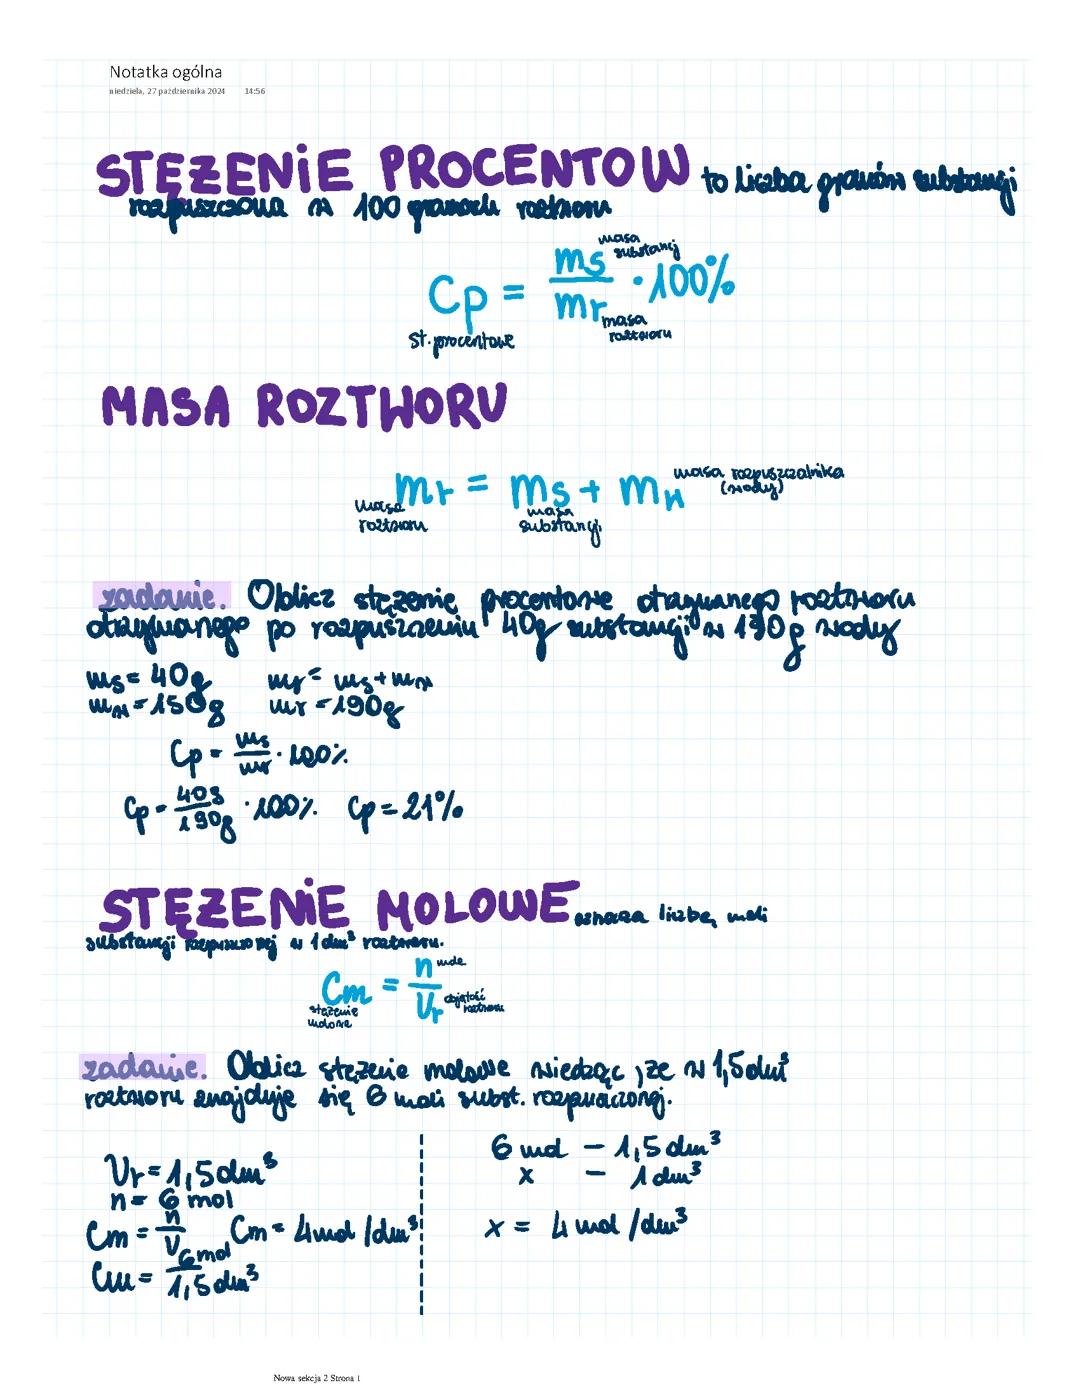 Notatka ogólna
niedziela, 27 października 2024 14:56
STĘŻENIE PROCENTOW to liczba gramów substancji
rozpuszczona w 100 gramach roztworu
Cp = ms/mr · 100%
masa substancj
masa roztworu
st. procentowe
MASA ROZTWORU
mr = ms + mw
masa rozpuszczalnika (wody)
masa roztworu
masa substancji
zadanie. Oblicz stężenie procentowe otrzymanego roztworu
otrzymanego po rozpuszczeniu 40g substancji w 190g wody
ms = 40g mr = ms + mw
mw = 150g mr = 190g
Cp = ms/mr · 100%
Cp = 40g/190g · 100% Cp = 21%
STĘŻENIE MOLOWE oznacza liczbę moli
substancji rozpuszczonej w 1dm³ roztworu.
Cm = n/Vr
mole
objętość roztworu
stężenie molowe
zadanie. Oblicz stężenie molowe wiedząc, że w 1,5dm³
roztworu znajduje się 6 moli subst. rozpuszczonej.
Vr = 1,5dm³
n = 6 mol
Cm = n/V Cm = 4mol/dm³
Cm = 6mol/1,5dm³
6 mol – 1,5dm³
x – 1dm³
x = 4mol/dm³
Nowa sekcja 2 Strona 1